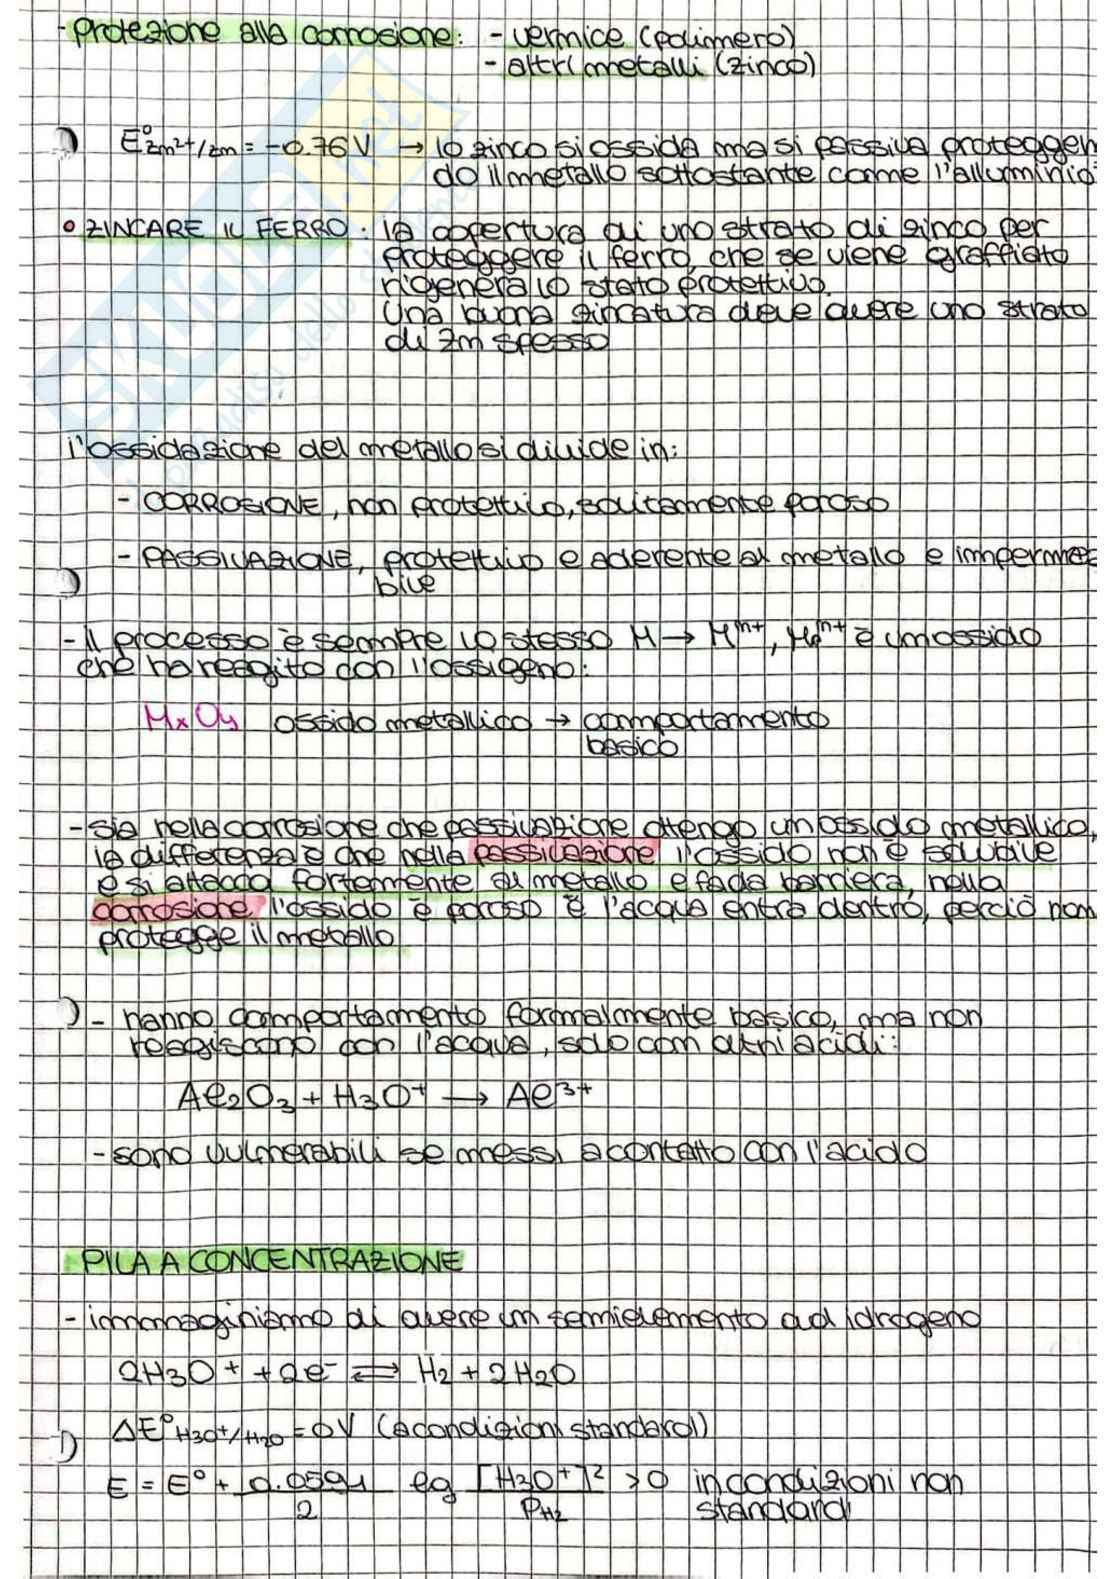 - protezione alla corrosione: - vernice (polimero)
- altri metalli (zinco)
E°Zn²⁺/Zn = -0.76 V → lo zinco si ossida ma si passiva proteggen
do il metallo sottostante come l'alluminio
• ZINCARE IL FERRO: la copertura di uno strato di zinco per
proteggere il ferro, che se viene graffiato
rigenera lo stato protettivo.
Una buona zincatura deve avere uno strato
di Zn spesso
l'ossidazione del metallo si divide in:
- CORROSIONE, non protettivo, solitamente poroso
- PASSIVAZIONE, protettivo e aderente al metallo e impermea
bile
- il processo è sempre lo stesso M → Mⁿ⁺, Mⁿ⁺ è un ossido
che ha reagito con l'ossigeno:
MxOy ossido metallico → comportamento
basico
- sia nella corrosione che passivazione ottengo un ossido metallico,
la differenza è che nella passivazione l'ossido non è solubile
e si attacca fortemente al metallo e fa da barriera, nella
corrosione l'ossido è poroso e l'acqua entra dentro, perciò non
protegge il metallo
- hanno comportamento formalmente basico, ma non
reagiscono con l'acqua, solo con altri acidi:
Al₂O₃ + H₃O⁺ → Al³⁺
- sono vulnerabili se messi a contatto con l'acido
PILA A CONCENTRAZIONE
- immaginiamo di avere un semielemento ad idrogeno
2H₃O⁺ + 2e⁻ ⇄ H₂ + 2H₂O
ΔE°H₃O⁺/H₂O = 0 V (a condizioni standard)
E = E° + 0.0591/2 lg [H₃O⁺]²/PH₂ > 0 in condizioni non
standard